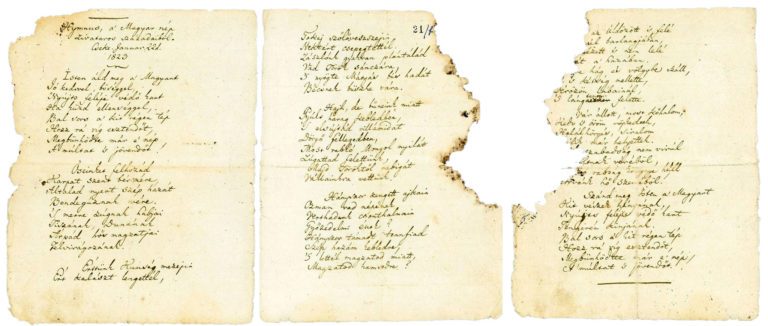 Hymnus, a' Magyar nép
zivataros századaiból.
Cseke Januar. 22d.
1823
Isten áldd meg a' Magyart
Jó kedvvel, bőséggel,
Nyújts feléje védő kart
Ha küzd ellenséggel,
Bal sors a' kit régen tép
Hozz rá víg esztendőt,
Megbűnhödte már e' nép
A' multat 's jövendőt.
Őseinket felhozád
Kárpát szent bérczére,
Általad nyert szép hazát
Bendegúznak vére.
'S merre zúgnak habjai
Tiszának, Dunának,
Árpád hős magzatjai
Felvirágozának.
Értünk Kunság mezein
Ért kalászt lengettél,
21/
Tokaj szőlővesszein
Nektárt csepegtettél,
Zászlónk gyakran plántálád
Vad Török sánczára,
'S nyögte Mátyás bús hadát
Bécsnek büszke vára.
Hajh, de bűneink miatt
Gyúlt harag kebledben,
'S elsújtád villámidat
Dörgő fellegedben,
Most rabló Mongol nyilát
Zúgattad felettünk,
Majd Töröktől rabigát
Vállainkra vettünk.
Hányszor zengett ajkain
Ozman vad népének
Vert hadunk csonthalmain
Győzedelmi ének!
Hányszor támadt tenfiad
Szép hazám kebledre,
'S lettél magzatod miatt
Magzatod hamvvedre?
az üldözött 's felé
barlangjában,
nézett 's nem lelé
a' hazában.
hág és völgybe száll,
kétség mellette,
Vérözön lábainál,
'S lángtenger felette.
Vár állott, most kőhalom,
Kedv 's öröm röpkedtek,
Halálhörgés, siralom
már helyettek.
szabadság nem virúl
véréből,
rabság könnye hull
hő szeméből.
Szánd meg Isten a' Magyart
Kit vészek hányának,
Nyújts feléje védő kart
Tengerén kínjának.
Bal sors a' kit régen tép
Hozz rá víg esztendőt,
Megbűnhödte már e' nép
A' multat 's jövendőt.